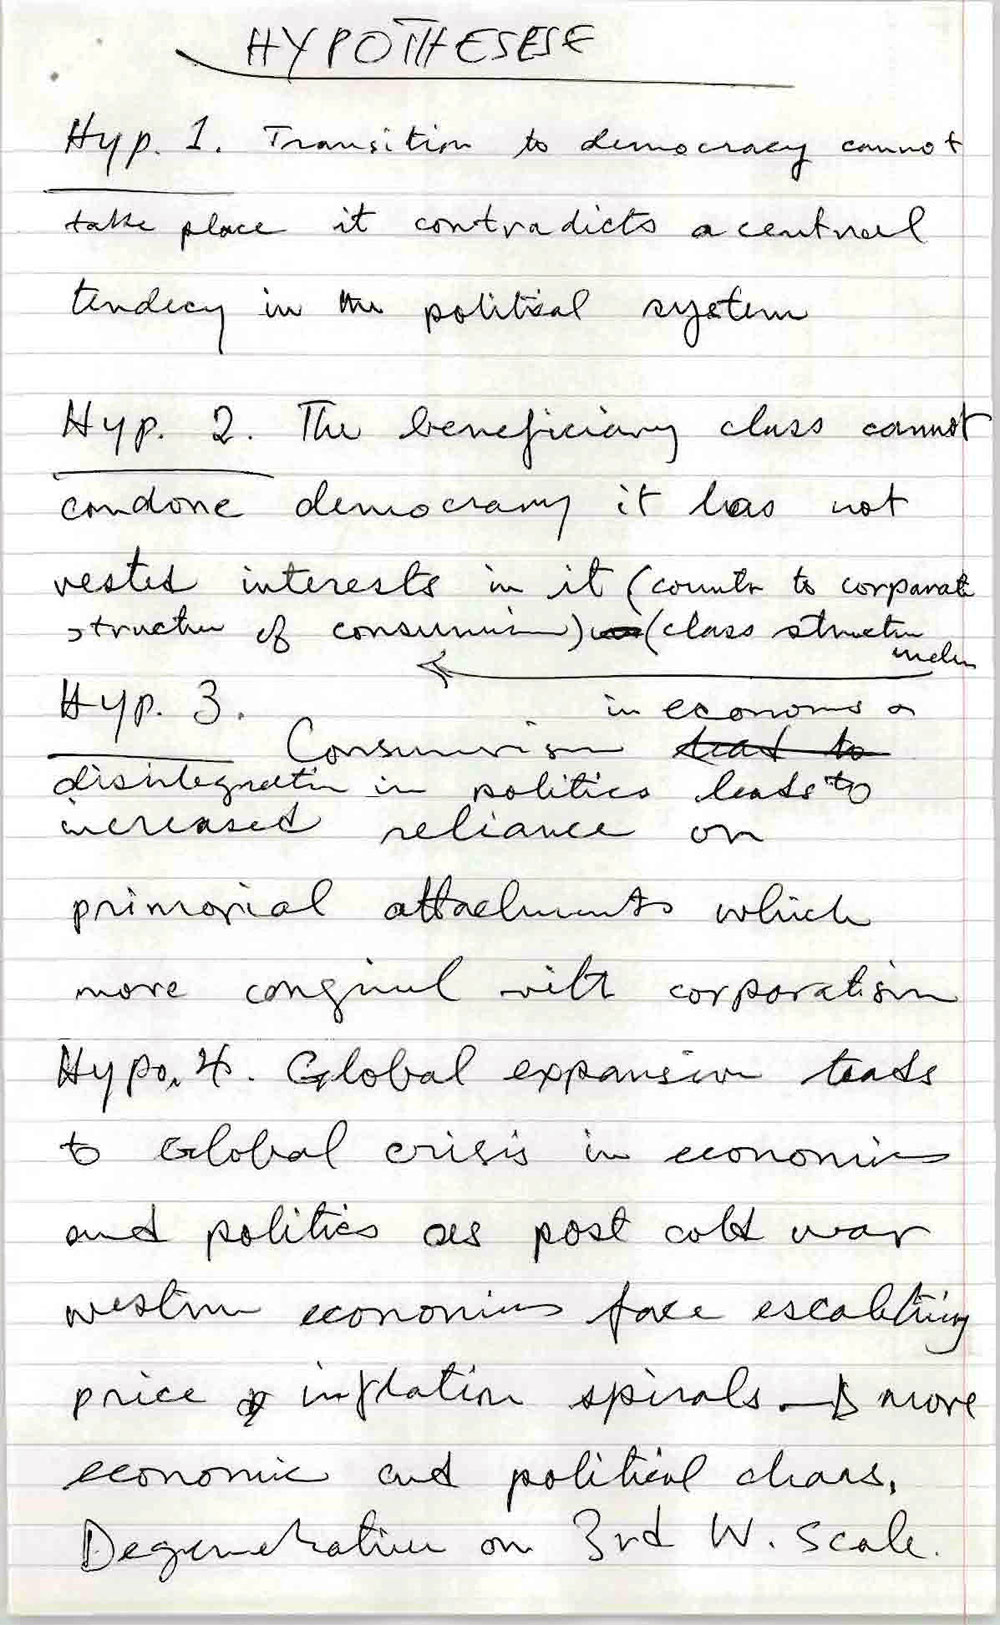 HYPOTHESESE
Hyp. 1. Transition to democracy cannot
take place it contradicts a central
tendecy in the political system
Hyp. 2. The beneficiary class cannot
condone democracy it has not
vested interests in it (counter to corporate
structure of consumerism) (class structure
under
Hyp. 3. in economs
Consumerism lead to
disintegration in politics leads to
increased reliance on
primorial attachments which
more conginul with corporatism
Hypo. 4. Global expansion leads
to Global crisis in economies
and politics as post cold war
western economies face escalating
price & inflation spirals → more
economic and political chaos.
Degeneration on 3rd W. Scale.